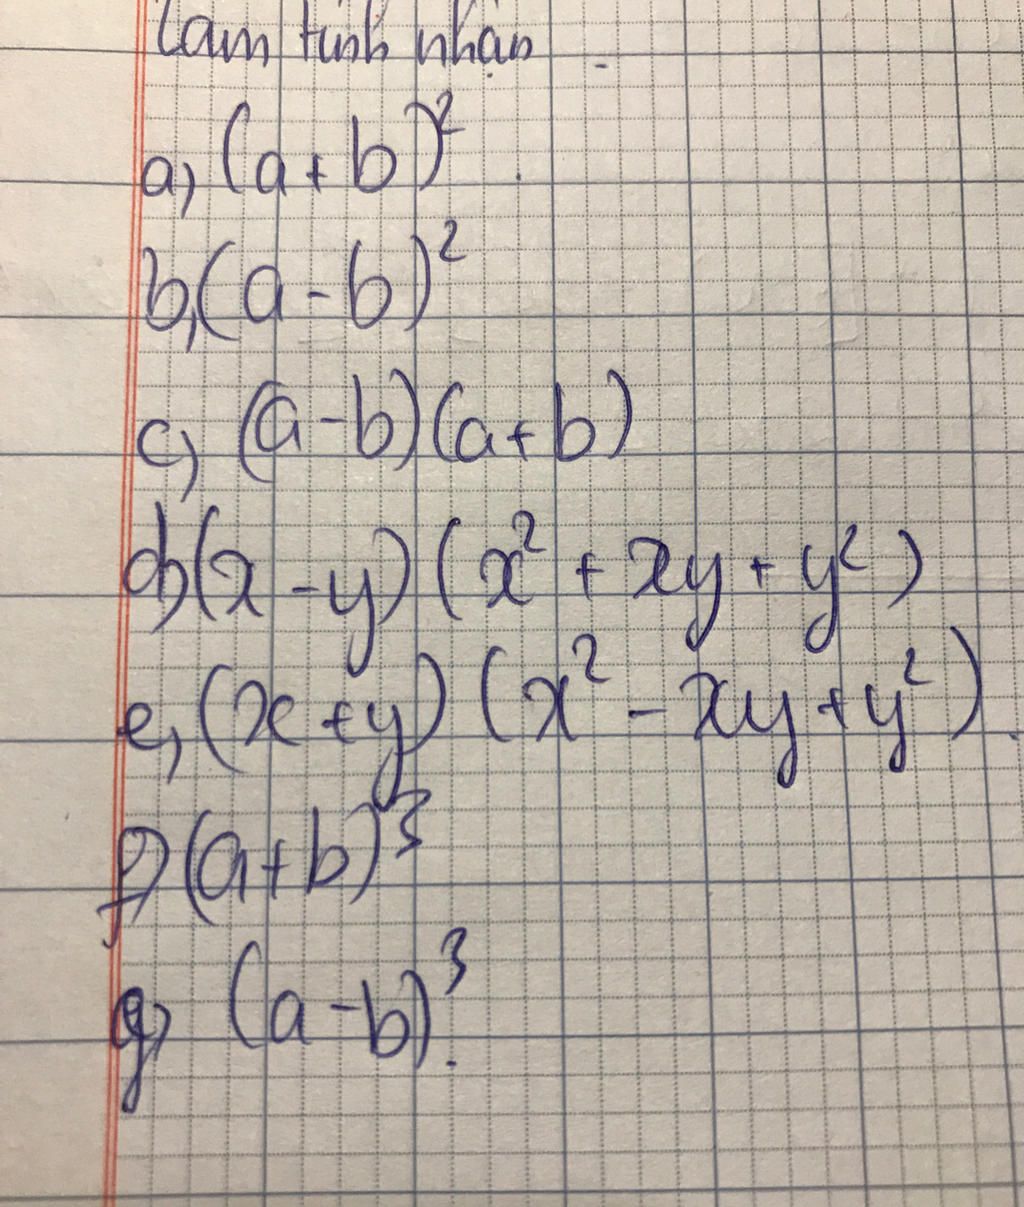 Làm tính nhân.
a, (a+b)².
b, (a-b)²
c, (a-b)(a+b)
d, (x-y)(x²+xy+y²)
e, (x+y)(x²-xy+y²).
f, (a+b)³
g, (a-b)³.